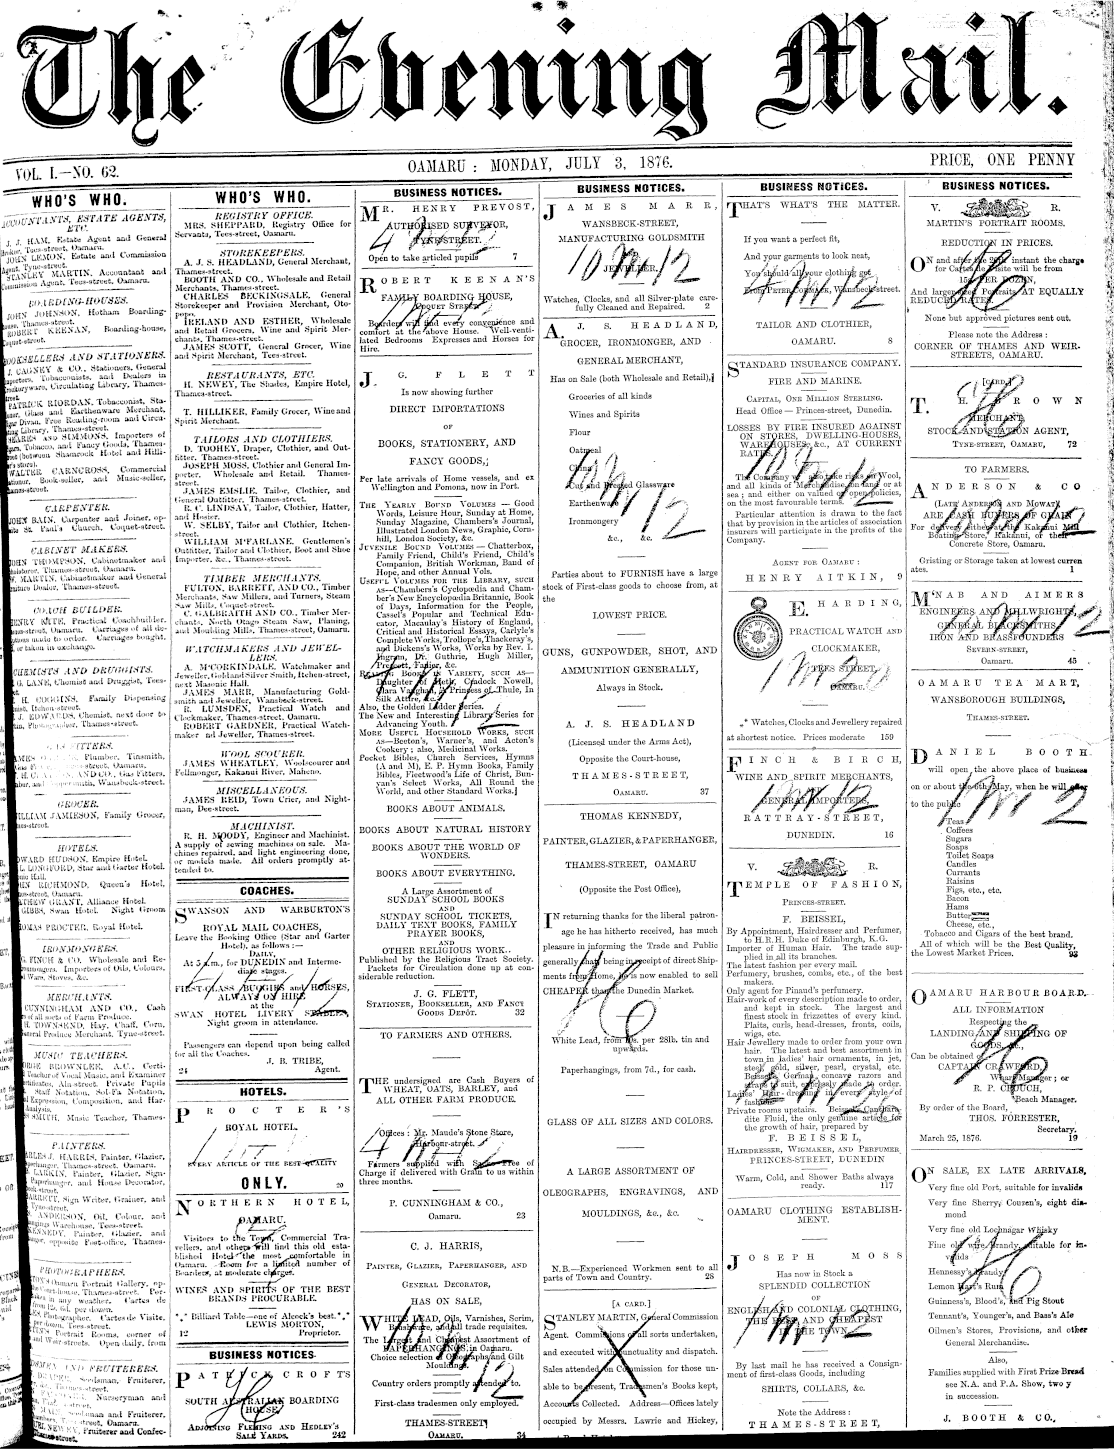 The Evening Mail.
VOL. I.—NO. 62.
OAMARU : MONDAY, JULY 3, 1876.
PRICE, ONE PENNY
WHO'S WHO.
ACCOUNTANTS, ESTATE AGENTS,
ETC.
J. J. HAM, Estate Agent and General
Broker, Tees-street, Oamaru.
JOHN LEMON, Estate and Commission
Agent, Tyne-street.
STANLEY MARTIN, Accountant and
Commission Agent, Tees-street, Oamaru.
BOARDING-HOUSES.
JOHN JOHNSON, Hotham Boarding-
house, Thames-street.
ROBERT KEENAN, Boarding-house,
Coquet-street.
BOOKSELLERS AND STATIONERS.
CAGNEY & CO., Stationers, General
Importers, Tobacconists, and Dealers in
Circulating Library, Thames-
street.
PATRICK RIORDAN, Tobacconist, Sta-
Glass and Earthenware Merchant,
Divan. Free Reading-room and Circu-
Library, Thames-street.
AND SIMMONS, Importers of
Tobacco, and Fancy Goods, Thames-
(between Shamrock Hotel and Hilli-
store).
WALTER CARNCROSS, Commercial
Book-seller, and Music-seller,
Thames-street.
CARPENTER.
JOHN BAIN, Carpenter and Joiner, op-
St. Paul's Church, Coquet-street.
CABINET MAKERS.
JOHN THOMPSON, Cabinetmaker and
Thames-street, Oamaru.
MARTIN, Cabinetmaker and General
Furniture Dealer, Thames-street.
COACH BUILDER.
HENRY KITE, Practical Coachbuilder.
Oamaru. Carriages of all de-
made to order. Carriages bought,
or taken in exchange.
CHEMISTS AND DRUGGISTS.
G. LANE, Chemist and Druggist, Tees-
H. COGGINS, Family Dispensing
J. EDWARDS, Chemist, next door to
GAS FITTERS.
Plumber, Tinsmith,
AND CO., Gas Fitters,
GROCER.
WILLIAM JAMIESON, Family Grocer,
HOTELS.
EDWARD HUDSON, Empire Hotel.
LONGFORD, Star and Garter Hotel.
RICHMOND, Queen's Hotel,
GRANT, Alliance Hotel.
GIBBS, Swan Hotel. Night Groom
THOMAS PROCTER, Royal Hotel.
IRONMONGERS.
FINCH & CO., Wholesale and Re-
Importers of Oils, Colours,
Stoves, &c.
MERCHANTS.
CUNNINGHAM AND CO., Cash
of all sorts of Farm Produce.
TOWNSEND, Hay, Chaff, Corn,
Produce Merchant, Tyne-street.
MUSIC TEACHERS.
BROWNLEE, A.C., Certi-
Teacher of Vocal Music, and Examiner
Private Pupils
Staff Notation, Sol-Fa Notation,
Expression, Composition, and Har-
SMITH, Music Teacher, Thames-
PAINTERS.
J. HARRIS, Painter, Glazier,
Thames-street, Oamaru.
LARKIN, Painter, Glazier, Sign-
Paperhanger, and House Decorator,
Sign Writer, Grainer, and
Tyne-street.
ANDERSON, Oil, Colour, and
Warehouse, Tees-street.
KENNEDY, Painter, Glazier, and
opposite Post-office, Thames-
PHOTOGRAPHERS.
Oamaru Portrait Gallery, op-
Thames-street. Por-
in any weather. Cartes de
per dozen.
Photographer. Cartes de Visite,
Tees-street.
Portrait Rooms, corner of
Open daily, from
SEEDSMEN AND FRUITERERS.
Seedsman, Fruiterer,
Nurseryman and
Seedsman and Fruiterer,
Oamaru.
Fruiterer and Confec-
Thames-street.
WHO'S WHO.
REGISTRY OFFICE.
MRS. SHEPPARD, Registry Office for
Servants, Tees-street, Oamaru.
STOREKEEPERS.
A. J. S. HEADLAND, General Merchant,
Thames-street.
BOOTH AND CO., Wholesale and Retail
Merchants, Thames-street.
CHARLES BECKINGSALE, General
Storekeeper and Provision Merchant, Oto-
popo.
IRELAND AND ESTHER, Wholesale
and Retail Grocers, Wine and Spirit Mer-
chants, Thames-street.
JAMES SCOTT, General Grocer, Wine
and Spirit Merchant, Tees-street.
RESTAURANTS, ETC.
H. NEWEY, The Shades, Empire Hotel,
Thames-street.
T. HILLIKER, Family Grocer, Wine and
Spirit Merchant.
TAILORS AND CLOTHIERS.
D. TOOHEY, Draper, Clothier, and Out-
fitter. Thames-street.
JOSEPH MOSS, Clothier and General Im-
porter. Wholesale and Retail. Thames-
street.
JAMES EMSLIE, Tailor, Clothier, and
General Outfitter. Thames-street.
R. C. LINDSAY, Tailor, Clothier, Hatter,
and Hosier.
W. SELBY, Tailor and Clothier, Itchen-
street.
WILLIAM M'FARLANE. Gentlemen's
Outfitter, Tailor and Clothier, Boot and Shoe
Importer, &c., Thames-street.
TIMBER MERCHANTS.
FULTON, BARRETT, AND CO., Timber
Merchants, Saw Millers, and Turners, Steam
Saw Mills, Coquet-street.
C. GALBRAITH AND CO., Timber Mer-
chants, North Otago Steam Saw, Planing,
and Moulding Mills, Thames-street, Oamaru.
WATCHMAKERS AND JEWEL-
LERS.
A. M'CORKINDALE, Watchmaker and
Jeweller, Gold and Silver Smith, Itchen-street,
next Masonic Hall.
JAMES MARR, Manufacturing Gold-
smith and Jeweller, Wansbeck-street.
R. LUMSDEN, Practical Watch and
Clockmaker, Thames-street. Oamaru.
ROBERT GARDNER, Practical Watch-
maker nd Jeweller, Thames-street.
WOOL SCOURER.
JAMES WHEATLEY, Woolscourer and
Fellmonger, Kakanui River, Maheno.
MISCELLANEOUS.
JAMES REID, Town Crier, and Night-
man, Dee-street.
MACHINIST.
R. H. MOODY, Engineer and Machinist.
A supply of sewing machines on sale. Ma-
chines repaired, and light engineering done,
or models made. All orders promptly at-
tended to.
COACHES.
SWANSON AND WARBURTON'S
ROYAL MAIL COACHES,
Leave the Booking Office (Star and Garter
Hotel), as follows :—
DAILY,
At 5 a.m., for DUNEDIN and Interme-
diate stages.
FIRST-CLASS BUGGIES and HORSES,
ALWAYS ON HIRE
at the
SWAN HOTEL LIVERY STABLES,
Night groom in attendance.
Passengers can depend upon being called
for all the Coaches.
J. B. TRIBE,
24 Agent.
HOTELS.
PROCTER'S
ROYAL HOTEL.
EVERY ARTICLE OF THE BEST QUALITY
ONLY. 20
NORTHERN HOTEL,
OAMARU.
Visitors to the Town, Commercial Tra-
vellers, and others will find this old esta-
blished Hotel the most comfortable in
Oamaru. Room for a limited number of
Boarders, at moderate charges.
WINES AND SPIRITS OF THE BEST
BRANDS PROCURABLE.
Billiard Table—one of Alcock's best.
LEWIS MORTON,
12 Proprietor.
BUSINESS NOTICES.
PATRICK CROFTS
SOUTH AUSTRALIAN BOARDING
HOUSE,
ADJOINING FLEMING AND HEDLEY'S
SALE YARDS. 242
BUSINESS NOTICES.
MR. HENRY PREVOST,
AUTHORISED SURVEYOR,
TYNE-STREET.
Open to take articled pupils 7
ROBERT KEENAN'S
FAMILY BOARDING HOUSE,
COQUET STREET.
Boarders will find every convenience and
comfort at the above House. Well-venti-
lated Bedrooms Expresses and Horses for
Hire.
J. G. FLETT
Is now showing further
DIRECT IMPORTATIONS
OF
BOOKS, STATIONERY, AND
FANCY GOODS,
Per late arrivals of Home vessels, and ex
Wellington and Pomona, now in Port.
THE YEARLY BOUND VOLUMES — Good
Words, Leisure Hour, Sunday at Home,
Sunday Magazine, Chambers's Journal,
Illustrated London News, Graphic, Corn-
hill, London Society, &c.
JUVENILE BOUND VOLUMES — Chatterbox,
Family Friend, Child's Friend, Child's
Companion, British Workman, Band of
Hope, and other Annual Vols.
USEFUL VOLUMES FOR THE LIBRARY, such
as—Chambers's Cyclopædia and Cham-
ber's New Encyclopædia Britannica, Book
of Days, Information for the People,
Cassel's Popular and Technical Edu-
cator, Macaulay's History of England,
Critical and Historical Essays, Carlyle's
Complete Works, Trollope's, Thackeray's,
and Dickens's Works, Works by Rev. I.
Ingram, Dr. Guthrie, Hugh Miller,
Prescott, Fadier, &c.
READING BOOKS IN VARIETY, such as—
Daughter of Heth, Cradock Nowell,
Clara Vaughan, A Princess of Thule, In
Silk Attire, &c.
Also, the Golden Ladder Series.
The New and Interesting Library Series for
Advancing Youth.
MORE USEFUL HOUSEHOLD WORKS, SUCH
AS—Beeton's, Warner's, and Acton's
Cookery; also, Medicinal Works.
Pocket Bibles, Church Services, Hymns
(A and M), E. P. Hymn Books, Family
Bibles, Fleetwood's Life of Christ, Bun-
yan's Select Works, All Round the
World, and other Standard Works.
BOOKS ABOUT ANIMALS.
BOOKS ABOUT NATURAL HISTORY
BOOKS ABOUT THE WORLD OF
WONDERS.
BOOKS ABOUT EVERYTHING.
A Large Assortment of
SUNDAY SCHOOL BOOKS
AND
SUNDAY SCHOOL TICKETS,
DAILY TEXT BOOKS, FAMILY
PRAYER BOOKS,
AND
OTHER RELIGIOUS WORK..
Published by the Religious Tract Society.
Packets for Circulation done up at con-
siderable reduction.
J. G. FLETT,
STATIONER, BOOKSELLER, AND FANCY
GOODS DEPÔT. 32
TO FARMERS AND OTHERS.
THE undersigned are Cash Buyers of
WHEAT, OATS, BARLEY, and
ALL OTHER FARM PRODUCE.
Offices : Mr. Maude's Stone Store,
Harbour-street.
Farmers supplied with Sacks Free of
Charge if delivered with Grain to us within
three months.
P. CUNNINGHAM & CO.,
Oamaru. 23
C. J. HARRIS,
PAINTER, GLAZIER, PAPERHANGER, AND
GENERAL DECORATOR,
HAS ON SALE,
WHITE LEAD, Oils, Varnishes, Scrim,
Brushware, and all trade requisites.
The Largest and Cheapest Assortment of
PAPERHANGINGS in Oamaru.
Choice selection of Oleographs and Gilt
Mouldings.
Country orders promptly attended to.
First-class tradesmen only employed.
THAMES-STREET,
OAMARU. 34
BUSINESS NOTICES.
JAMES MARR,
WANSBECK-STREET,
MANUFACTURING GOLDSMITH
JEWELLER.
Watches, Clocks, and all Silver-plate care-
fully Cleaned and Repaired. 2
A. J. S. HEADLAND,
GROCER, IRONMONGER, AND
GENERAL MERCHANT,
Has on Sale (both Wholesale and Retail),
Groceries of all kinds
Wines and Spirits
Flour
Oatmeal
China
Cut and Pressed Glassware
Earthenware
Ironmongery
&c., &c.
Parties about to FURNISH have a large
stock of First-class goods to choose from, at
the
LOWEST PRICE.
GUNS, GUNPOWDER, SHOT, AND
AMMUNITION GENERALLY,
Always in Stock.
A. J. S. HEADLAND
(Licensed under the Arms Act),
Opposite the Court-house,
THAMES-STREET,
OAMARU. 37
THOMAS KENNEDY,
PAINTER, GLAZIER, & PAPERHANGER,
THAMES-STREET, OAMARU
(Opposite the Post Office),
IN returning thanks for the liberal patron-
age he has hitherto received, has much
pleasure in informing the Trade and Public
generally that being in receipt of direct Ship-
ments from Home, he is now enabled to sell
CHEAPER than the Dunedin Market.
White Lead, from per 28lb. tin and
upwards.
Paperhangings, from 7d., for cash.
GLASS OF ALL SIZES AND COLORS.
A LARGE ASSORTMENT OF
OLEOGRAPHS, ENGRAVINGS, AND
MOULDINGS, &c., &c.
N.B.—Experienced Workmen sent to all
parts of Town and Country. 28
[A CARD.]
STANLEY MARTIN, General Commission
Agent. Commissions of all sorts undertaken,
and executed with punctuality and dispatch.
Sales attended on Commission for those un-
able to be present, Tradesmen's Books kept,
Accounts Collected. Address—Offices lately
occupied by Messrs. Lawrie and Hickey,
BUSINESS NOTICES.
THAT'S WHAT'S THE MATTER.
If you want a perfect fit,
And your garments to look neat,
You should all your clothing get
From PETER CORMACK, Wansbeck-street.
TAILOR AND CLOTHIER,
OAMARU. 8
STANDARD INSURANCE COMPANY.
FIRE AND MARINE.
CAPITAL, ONE MILLION STERLING.
Head Office — Princes-street, Dunedin.
LOSSES BY FIRE INSURED AGAINST
ON STORES, DWELLING-HOUSES,
WAREHOUSES, &c., AT CURRENT
RATES.
The Company also take risks on Wool,
and all kinds of Merchandise, on land or at
sea ; and either on valued or open policies,
on the most favourable terms.
Particular attention is drawn to the fact
that by provision in the articles of association
insurers will participate in the profits of the
Company.
AGENT FOR OAMARU :
HENRY AITKIN, 9
E. HARDING,
PRACTICAL WATCH AND
CLOCKMAKER,
TEES STREET,
OAMARU.
Watches, Clocks and Jewellery repaired
at shortest notice. Prices moderate 159
FINCH & BIRCH,
WINE AND SPIRIT MERCHANTS,
GENERAL IMPORTERS,
RATTRAY-STREET,
DUNEDIN. 16
V. R.
TEMPLE OF FASHION,
PRINCES-STREET.
F. BEISSEL,
By Appointment, Hairdresser and Perfumer,
to H.R.H. Duke of Edinburgh, K.G.
Importer of Human Hair. The trade sup-
plied in all its branches.
The latest fashion per every mail.
Perfumery, brushes, combs, etc., of the best
makers.
Only agent for Pinaud's perfumery.
Hair-work of every description made to order,
and kept in stock. The largest and
finest stock in frizzettes of every kind.
Plaits, curls, head-dresses, fronts, coils,
wigs, etc.
Hair Jewellery made to order from your own
hair. The latest and best assortment in
town in ladies' hair ornaments, in jet,
steel, gold, silver, pearl, crystal, etc.
Beissel's German concave razors and
suit, expressly made to order.
Ladies' Hair-dressing in every style of
fashion.
Private rooms upstairs. Beissel's Canthari-
dite Fluid, the only genuine article for
the growth of hair, prepared by
F. BEISSEL,
HAIRDRESSER, WIGMAKER, AND PERFUMER
PRINCES-STREET, DUNEDIN
Warm, Cold, and Shower Baths always
ready. 117
OAMARU CLOTHING ESTABLISH-
MENT.
JOSEPH MOSS
Has now in Stock a
SPLENDID COLLECTION
OF
ENGLISH AND COLONIAL CLOTHING,
THE BEST AND CHEAPEST
IN THE TOWN.
By last mail he has received a Consign-
ment of first-class Goods, including
SHIRTS, COLLARS, &c.
Note the Address :
THAMES-STREET,
BUSINESS NOTICES.
V. R.
MARTIN'S PORTRAIT ROOMS.
REDUCTION IN PRICES.
ON and after the 29th instant the charge
for Cartes de Visite will be from
15s PER DOZEN,
And larger sized Portraits AT EQUALLY
REDUCED RATES.
None but approved pictures sent out.
Please note the Address :
CORNER OF THAMES AND WEIR-
STREETS, OAMARU.
[CARD.]
T. H. BROWN
MERCHANT
STOCK AND STATION AGENT,
TYNE-STREET, OAMARU, 72
TO FARMERS.
ANDERSON & CO
(LATE ANDERSON AND MOWAT),
ARE CASH BUYERS OF GRAIN
For delivery either at the Kakanui Mill
Boating Store, Kakanui, or their
Concrete Store, Oamaru.
Gristing or Storage taken at lowest curren
ates. 1
M'NAB AND AIMERS
ENGINEERS AND MILLWRIGHTS,
GENERAL BLACKSMITHS,
IRON AND BRASSFOUNDERS
SEVERN-STREET,
Oamaru. 45
OAMARU TEA MART,
WANSBOROUGH BUILDINGS,
THAMES-STREET.
DANIEL BOOTH
will open the above place of business
on or about the 6th May, when he will offer
to the public
Teas
Coffees
Sugars
Soaps
Toilet Soaps
Candles
Currants
Raisins
Figs, etc., etc.
Bacon
Hams
Butter
Cheese, etc.,
Tobacco and Cigars of the best brand.
All of which will be the Best Quality,
the Lowest Market Prices. 93
OAMARU HARBOUR BOARD.
ALL INFORMATION
Respecting the
LANDING AND SHIPPING OF
GOODS, &c.,
Can be obtained of
CAPTAIN CRAWFORD,
Wharf Manager ; or
R. P. CHOUCH,
Beach Manager.
By order of the Board,
THOS. FORRESTER,
Secretary.
March 25, 1876. 19
ON SALE, EX LATE ARRIVALS,
Very fine old Port, suitable for invalids
Very fine Sherry, Couzen's, eight dia-
mond
Very fine old Lochnagar Whisky
Fine old wire Brandy, suitable for in-
valids
Hennessy's Brandy
Lemon Hart's Rum
Guinness's, Blood's, and Pig Stout
Tennant's, Younger's, and Bass's Ale
Oilmen's Stores, Provisions, and other
General Merchandise.
Also,
Families supplied with First Prize Bread
see N.A. and P.A. Show, two y
in succession.
J. BOOTH & CO.,